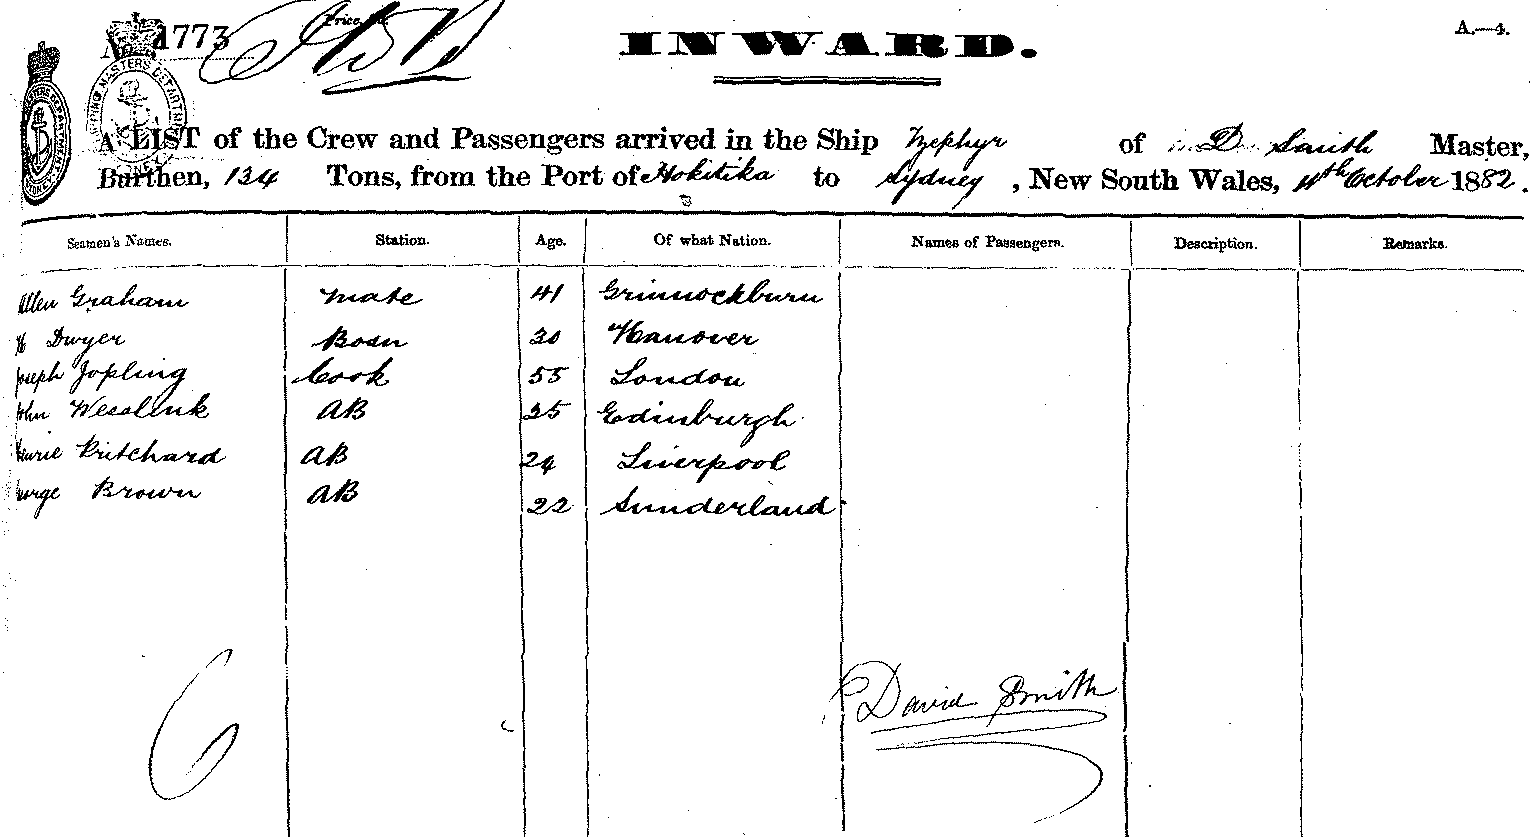 1773
INWARD.
A.—4.
A LIST of the Crew and Passengers arrived in the Ship Zephyr of D Smith Master,
Burthen, 134 Tons, from the Port of Hokitika to Sydney, New South Wales, 11th October 1882.
Seamen's Names. Station. Age. Of what Nation. Names of Passengers. Description. Remarks.
Allen Graham Mate 41 Grinnockburn
H Dwyer Bosn 30 Hanover
Joseph Jopling Cook 55 London
John Wesslink AB 25 Edinburgh
Pritchard AB 24 Liverpool
George Brown AB 22 Sunderland
6
David Smith